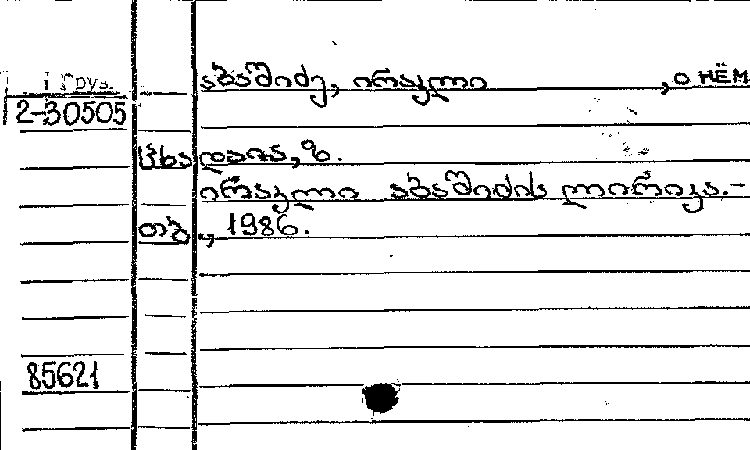 1 Груз. აბაშიძე, ირაკლი , о нём
2-30505
ცხადაია, ზ.
ირაკლი აბაშიძის ლირიკა.-
თბ., 1986.
85621